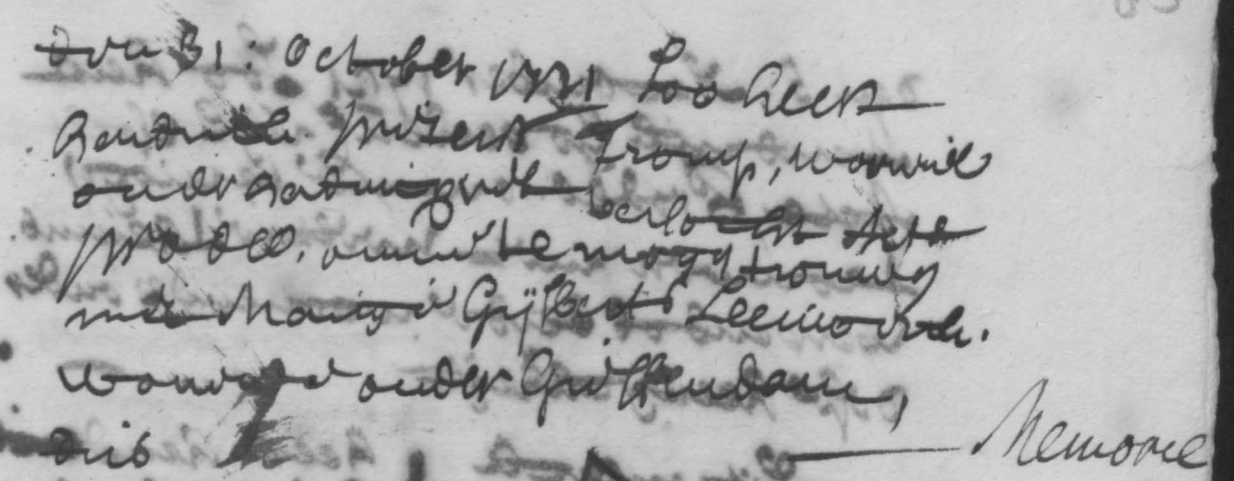 den 31: October 1731 Soo heeft
Hendrick Tromp, woonende
onder versocht Acte
pro deo. omme te mogen trouwen
met Marigie Gijsbert Leemoirde.
woonende onder Giessendam,
dus Memorie